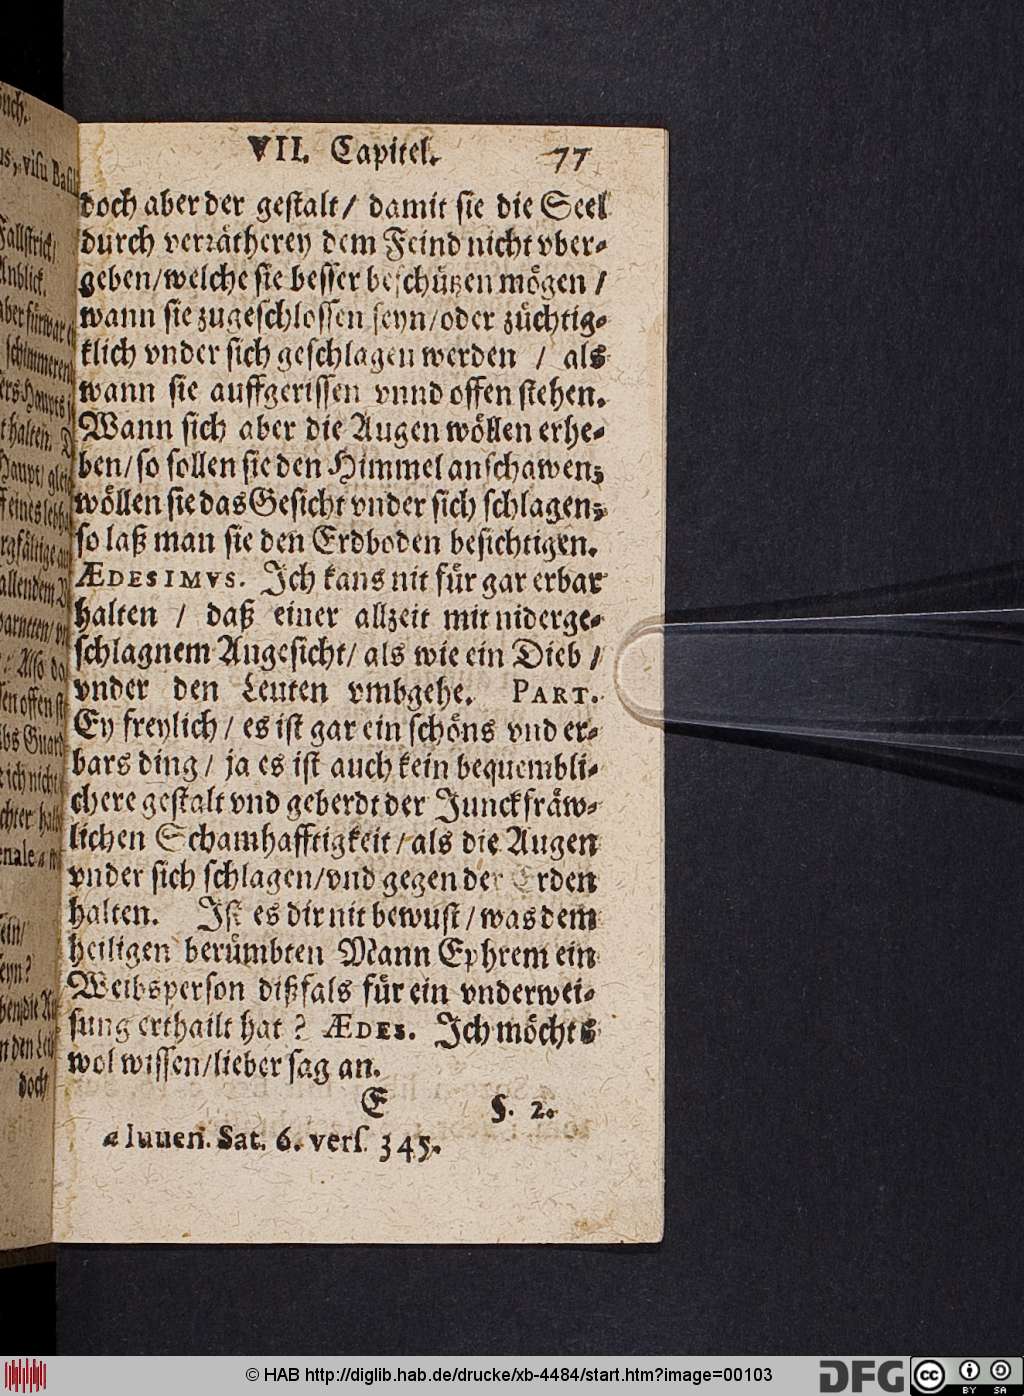 VII. Capitel. 77
doch aber der gestalt / damit sie die Seel
durch verrätherey dem Feind nicht vber-
geben / welche sie besser beschützen mögen /
wann sie zugeschlossen seyn / oder züchtig-
klich vnder sich geschlagen werden / als
wann sie auffgerissen vnnd offen stehen.
Wann sich aber die Augen wöllen erhe-
ben / so sollen sie den Himmel anschawen;
wöllen sie das Gesicht vnder sich schlagen;
so laß man sie den Erdboden besichtigen.
ÆDESIMVS. Ich kans nit für gar erbar
halten / daß einer allzeit mit niderge-
schlagnem Angesicht / als wie ein Dieb /
vnder den Leuten vmbgehe. PART.
Ey freylich / es ist gar ein schöns vnd er-
bars ding / ja es ist auch kein bequembli-
chere gestalt vnd geberdt der Junckfräw-
lichen Schamhafftigkeit / als die Augen
vnder sich schlagen / vnd gegen der Erden
halten. Ist es dir nit bewust / was dem
heiligen berümbten Mann Ephrem ein
Weibsperson dißfals für ein vnderwei-
sung erthailt hat? ÆDES. Ich möchte
wol wissen / lieber sag an.
E §. 2.
a Iuuen. Sat. 6. vers. 345.
© HAB http://diglib.hab.de/drucke/xb-4484/start.htm?image=00103
DFG
cc BY SA